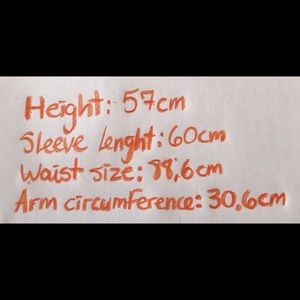 Height: 57cm
Sleeve lenght: 60cm
Waist size: 88,6cm
Arm circumference: 30,6cm